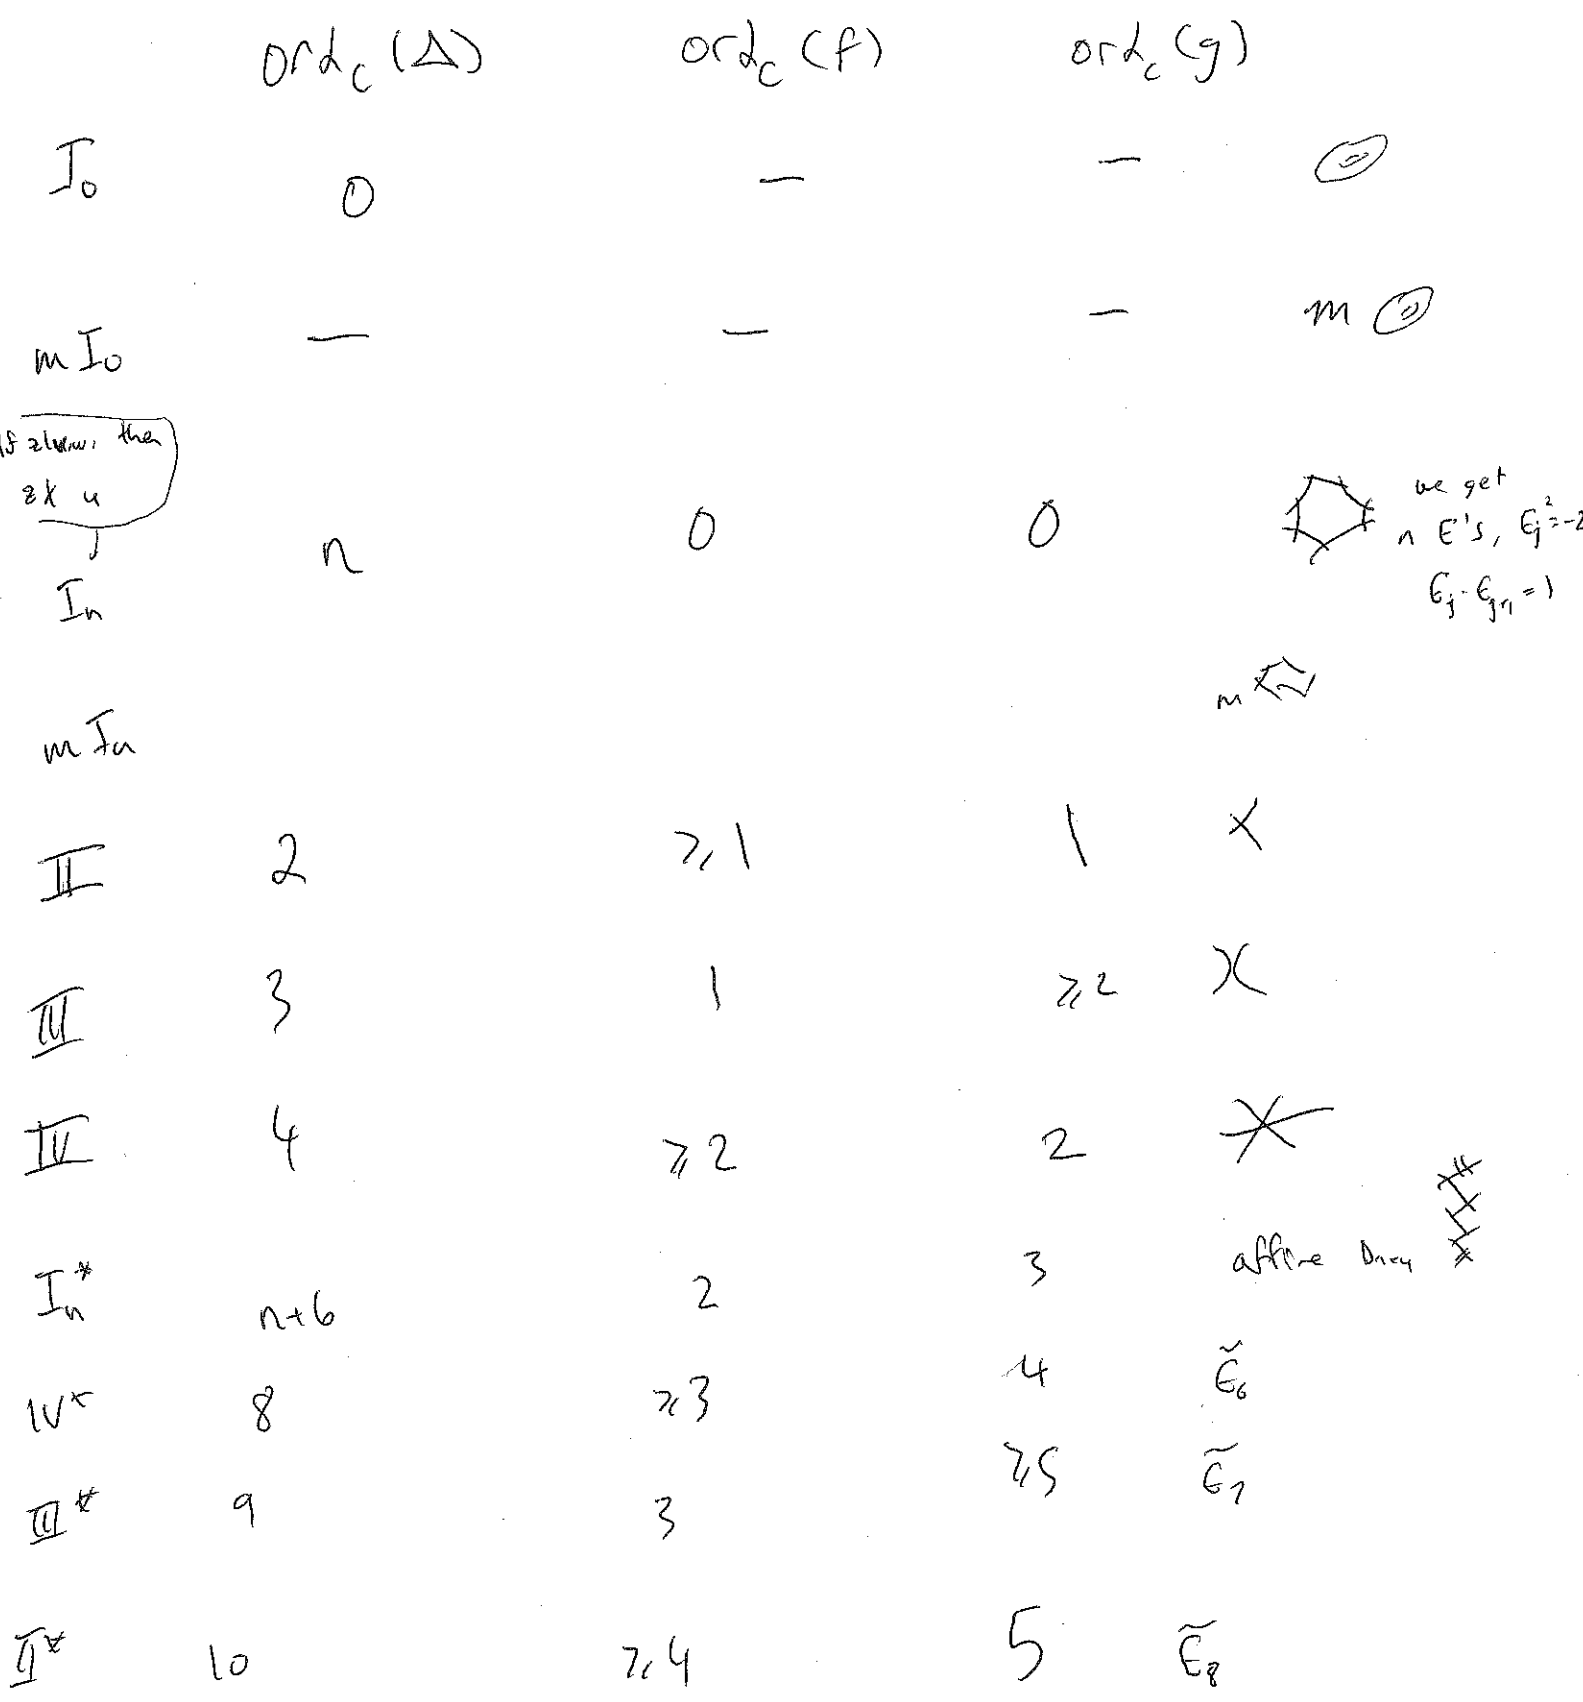 ord_c(Δ) ord_c(f) ord_c(g)
I₀ 0 — —
mI₀ — — — m
If then
we get
Iₙ n 0 0 n E's, Eⱼ² = -2
Eⱼ · Eⱼ₊₁ = 1
mIₙ m
II 2 ≥1 1
III 3 1 ≥2
IV 4 ≥2 2
Iₙ* n+6 2 3 affine Dₙ₊₄
IV* 8 ≥3 4 Ẽ₆
III* 9 3 ≥5 Ẽ₇
II* 10 ≥4 5 Ẽ₈